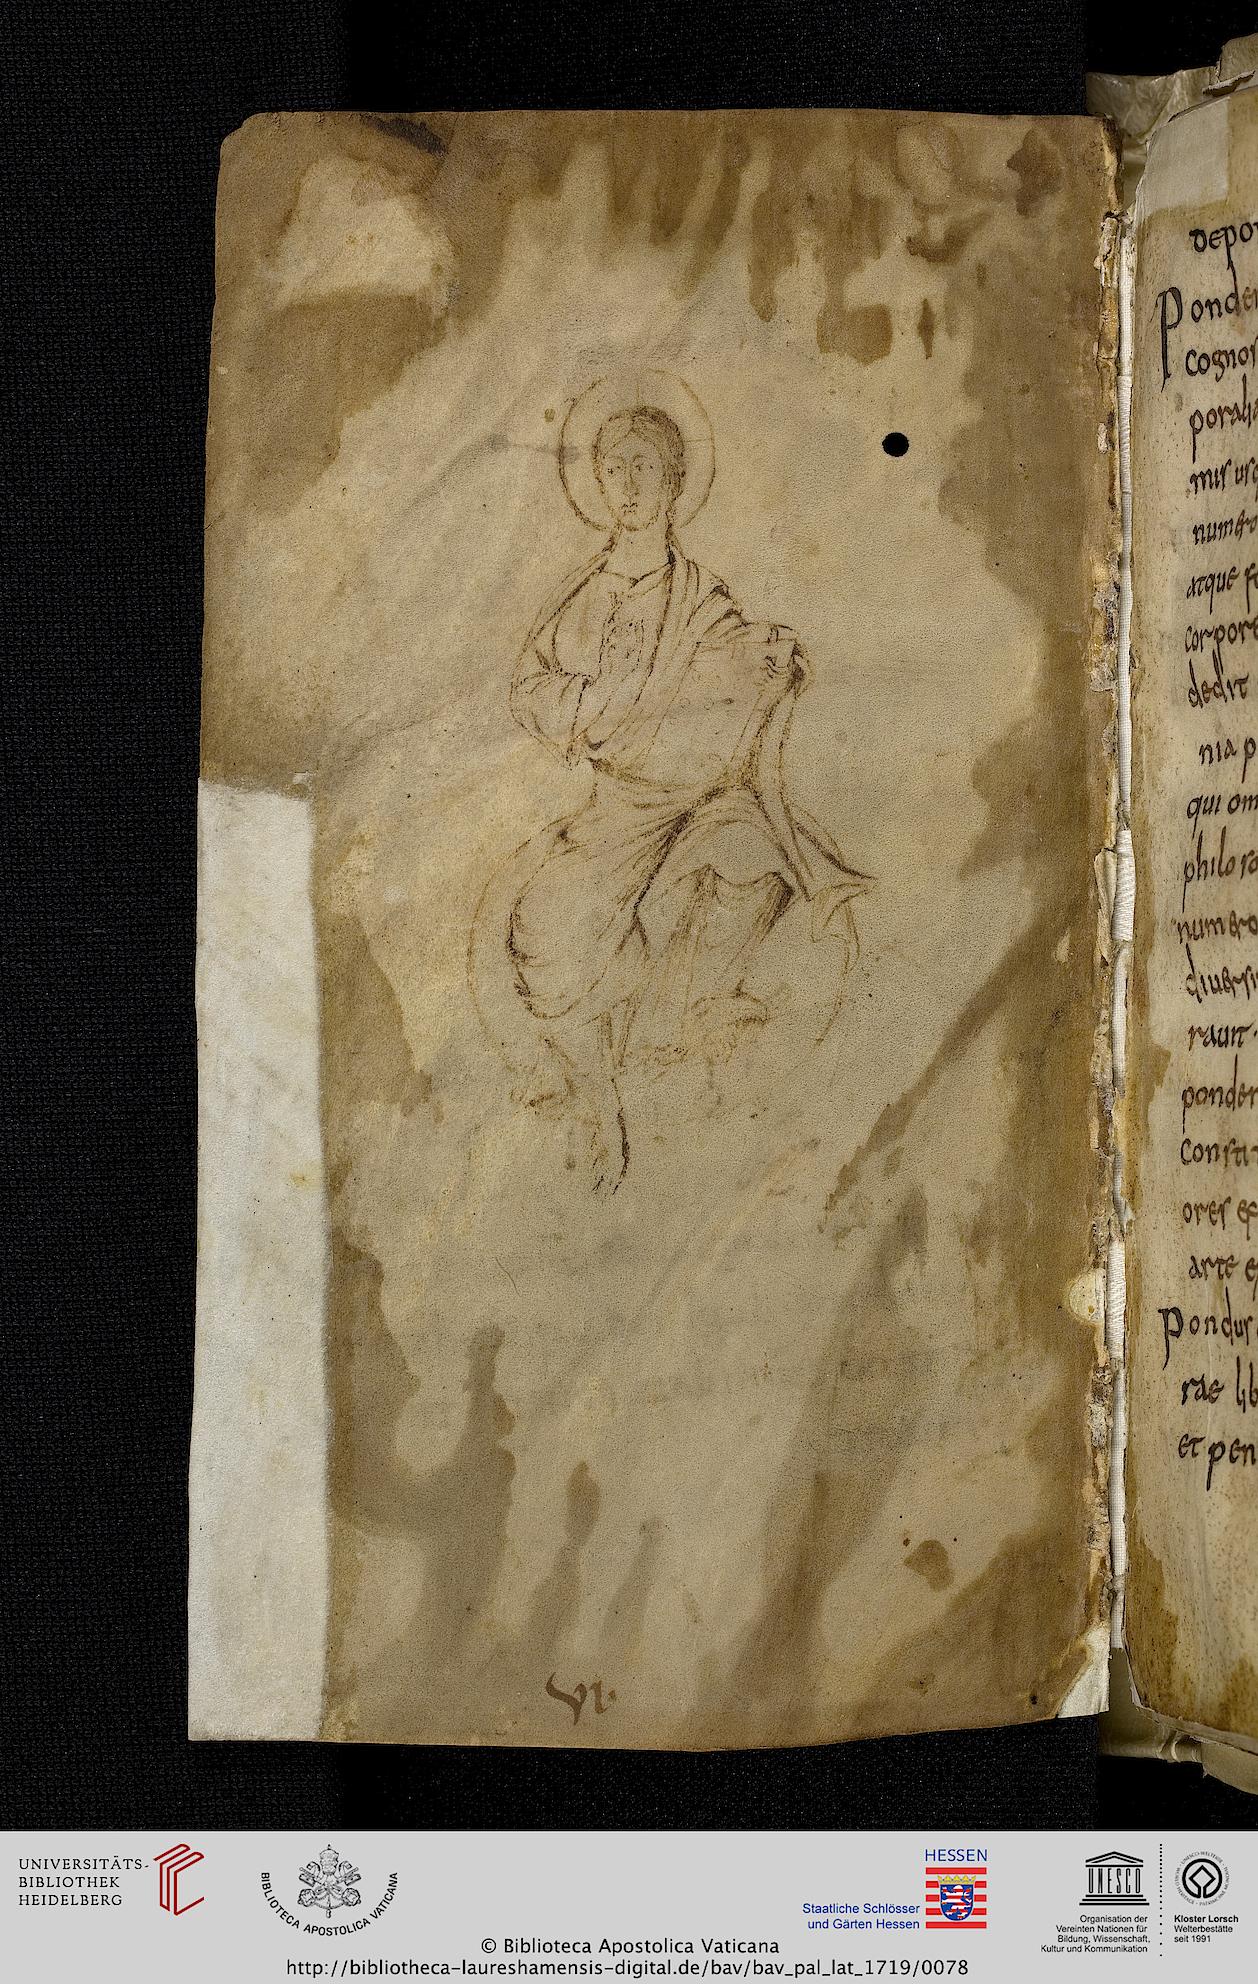 depo
Ponde
cognos
poralia
mis us
numero
atque fo
corpore
dedit
nia p
qui om
philoso
numero
diuersi
raunt.
ponder
Consti
ores &
arte e
Pondus
rae lib
et pen
VI
UNIVERSITÄTS-
BIBLIOTHEK
HEIDELBERG
BIBLIOTECA APOSTOLICA VATICANA
HESSEN
Staatliche Schlösser
und Gärten Hessen
UNESCO
Organisation der
Vereinten Nationen für
Bildung, Wissenschaft,
Kultur und Kommunikation
Kloster Lorsch
Welterbestätte
seit 1991
© Biblioteca Apostolica Vaticana
http://bibliotheca-laureshamensis-digital.de/bav/bav_pal_lat_1719/0078